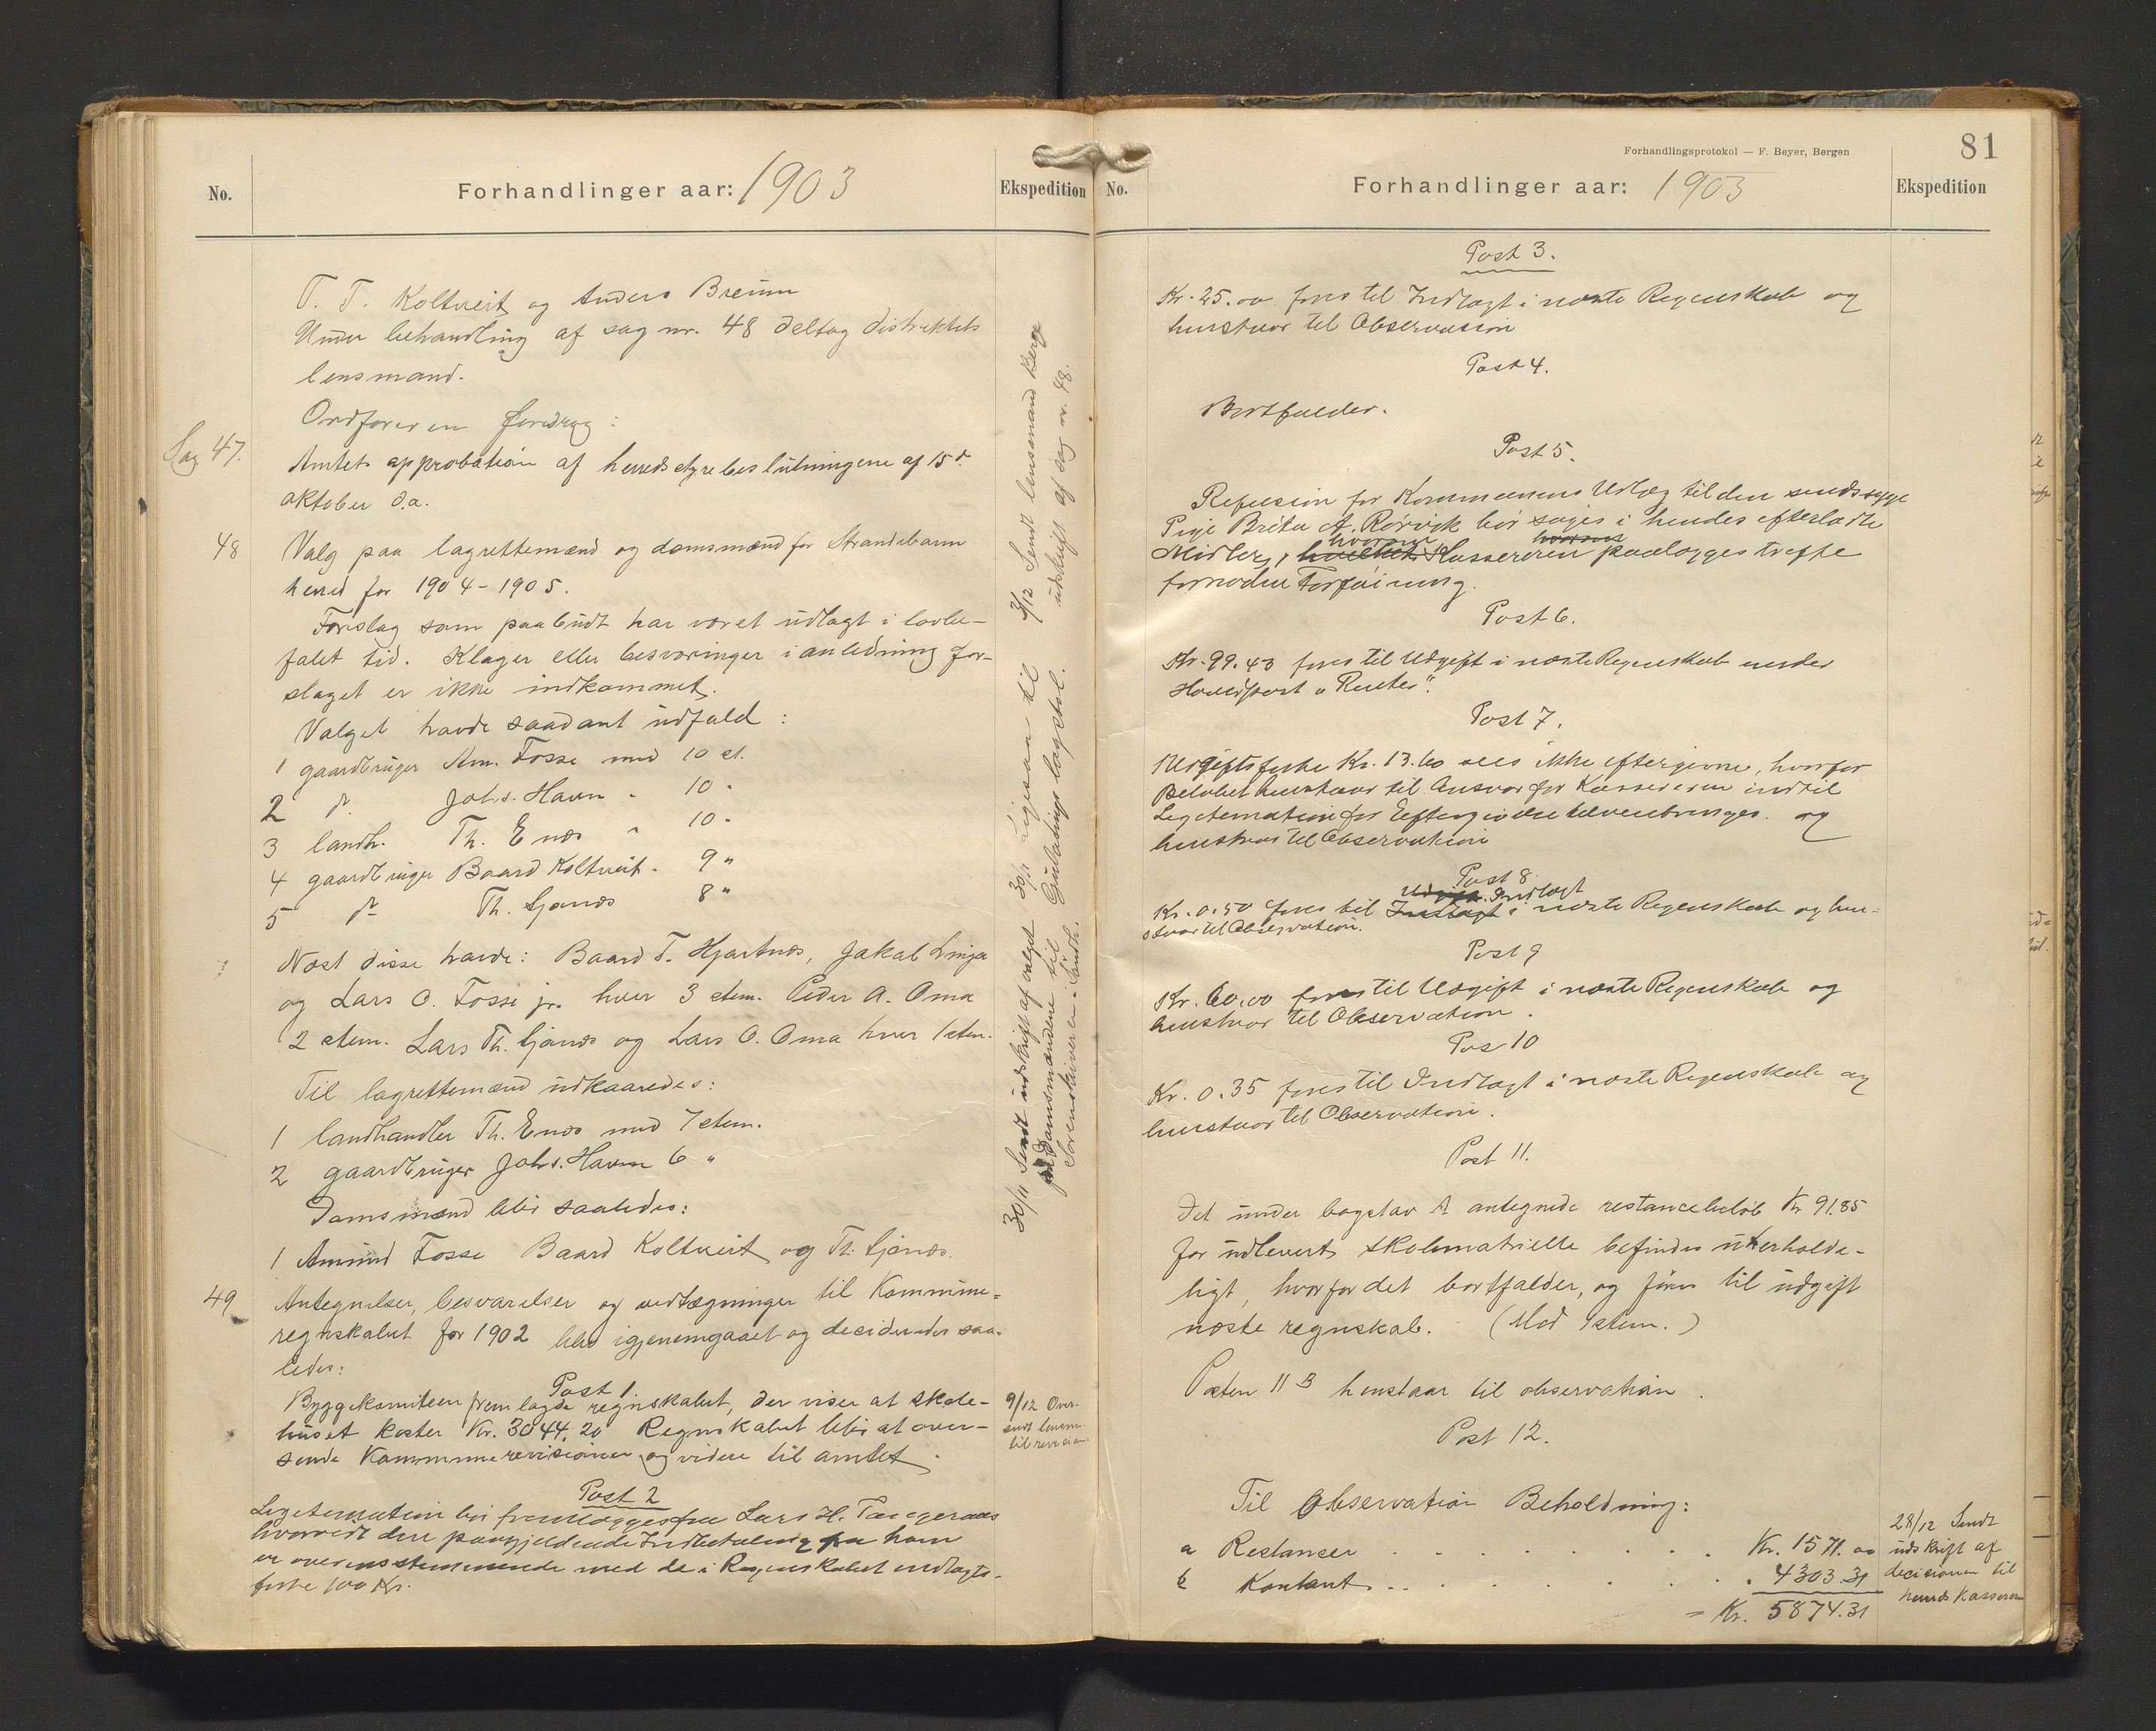 No.
Forhandlinger aar: 1903
Ekspedition
T. T. Koltveit og Anders Breun
Under behandling af sag nr. 48 deltog distriktets
lensmand.
Ordføreren foredrag:
Sag 47.
Amtets approbation af herredsstyrebeslutningerne af 15de
oktober d.a.
48
Valg paa lagrettemænd og domsmænd for Strandebarm
herred for 1904-1905.
Forslag som paabudt har været udlagt i lovbe-
falet tid. Klager eller besværinger i anledning for-
slaget er ikke indkommet.
Valget havde saadant udfald:
1 gaardbruger Am. Fosse med 10 st.
2 do Johs. Havn " 10 "
3 landh. Th. Enæs " 10 "
4 gaardbruger Baard Koltveit " 9 "
5 do Th. Sjønæs 8 "
Næst disse havde: Baard T. Hjartnæs, Jakob Linga
og Lars O. Fosse jr. hver 3 stem. Peder A. Oma
2 stem. Lars Th. Sjønæs og Lars O. Oma hver 1 stem.
Til lagrettemænd udkaaredes:
1 landhandler Th. Enæs med 7 stem.
2 gaardbruger Johs. Havn 6 "
Domsmænd blir saaledes:
1 Amund Fosse Baard Koltveit og Th. Sjønæs.
49
Antegnelser, besvarelser og vedtægninger til Kommune-
regnskabet for 1902 blev igjenemgaaet og decideredes saa-
ledes:
Post 1.
Byggekomiteen fremlagde regnskabet, der viser at skole-
huset koster Kr. 3044,20 Regnskabet blir at over-
sende Kommunerevisionen og videre til amtet.
Post 2
Legitemation bør fremlægges fra Lars H. Tangeraas
hvorvidt den paagjeldende Indbetaling fra ham
er overensstemmende med de i Regnskabet indtægts-
førte 100 Kr.
30/11 Sendt udskrift af valget
paa Domsmændene til
Sorenskriveren i Søndh.
30/11 Ligesaa til
Gulathings lagstol.
3/12 Sendt lensmand Berge
udskrift af sag nr. 48.
9/12 Over-
sendt lensm.
til revision
Forhandlingsprotokol — F. Beyer, Bergen
81
No.
Forhandlinger aar: 1903
Ekspedition
Post 3.
Kr. 25.00 føres til Indtægt i næste Regnskab og
henstaar til Observasion
Post 4.
Bortfalder.
Post 5.
Refusion for Kommunens Udlæg til den sindssyge
Pige Brita A. Rørvik bør søges i hendes efterladte
Midler, hvorom Kassereren paalægges træffe
fornøden Forføining.
Post 6.
Kr. 99.43 føres til Udgift i næste Regnskab under
Hovedpost "Renter".
Post 7.
Udgiftsførte Kr. 13.60 sees ikke eftergivne, hvorfor
Beløbet henstaar til Ansvar for Kassereren indtil
Legitemation for Eftergivelse tilveiebringes. og
henstaar til Observation
Post 8.
Kr. 0.50 føres til Indtægt i næste Regnskab og hen-
staar til Observation.
Post 9
Kr. 60.00 føres til Udgift i næste Regnskab og
henstaar til Observation.
Pos 10
Kr. 0.35 føres til Indtægt i næste Regnskab og
henstaar til Observation.
Post 11.
Det under bogstav A antegnede restancebeløb Kr 91.85
for udlevert skolematrielle befindes uerholde-
ligt, hvorfor det bortfalder, og føres til udgift
næste regnskab. (Mod 1 stem.)
Posten 11 B henstaar til observation.
Post 12.
Til Observation Beholdning:
a Restanser . . . . . . . Kr. 1571.00
b Kontant . . . . . . . 4303.31
= Kr. 5874.31
28/12 Sendt
udskrift af
decisionen til
herredskassereren